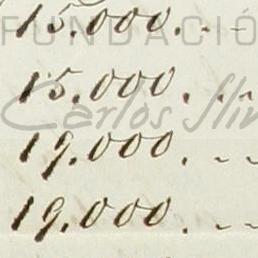 15.000. - -
FUNDACIÓ
15.000. - -
Carlos
19.000. - -
19.000. - -